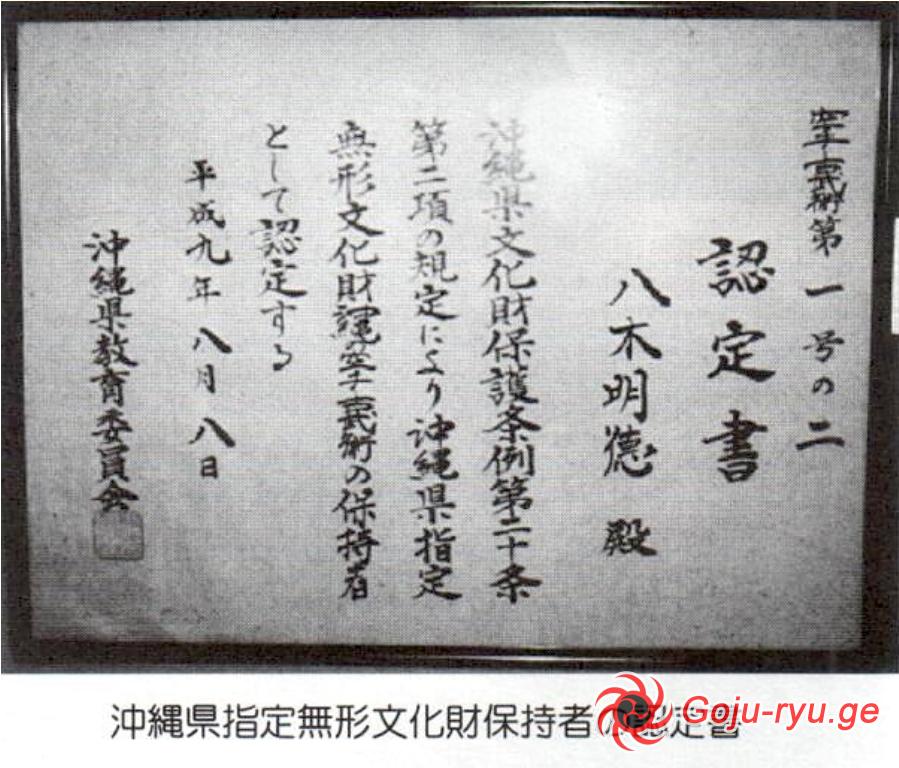 空手・古武術第一号の二
認定書
八木明徳 殿
沖縄県文化財保護条例第二十条
第二項の規定により沖縄県指定
無形文化財沖縄の空手・古武術の保持者
として認定する
平成九年八月八日
沖縄県教育委員会
沖縄県指定無形文化財保持者の認定書
Goju-ryu.ge